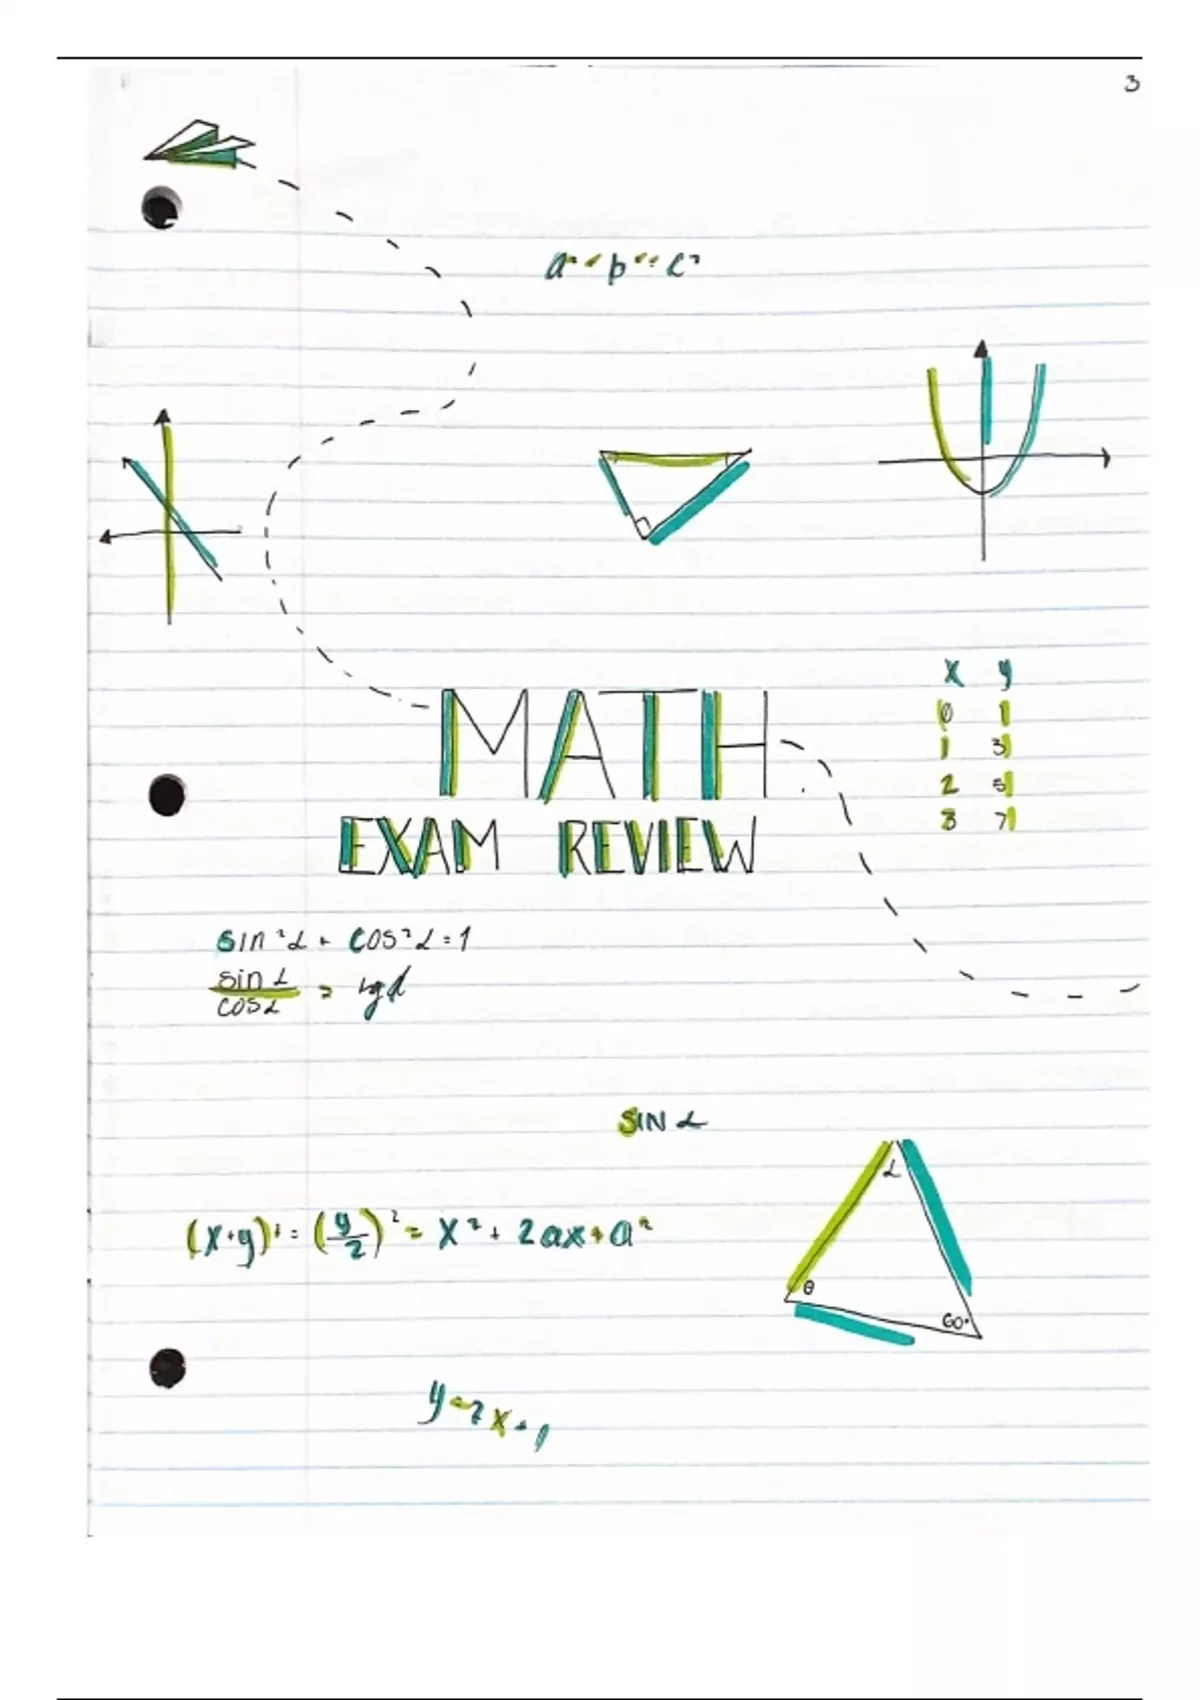 3
a² + b² = c²
x y
0 1
1 3
2 5
3 7
MATH
EXAM REVIEW
sin²α + cos²α = 1
sin α
cos α
= tgα
SIN α
α
(x+y)² = (y/2)² = x² + 2ax + a²
θ
60°
y=2x+1